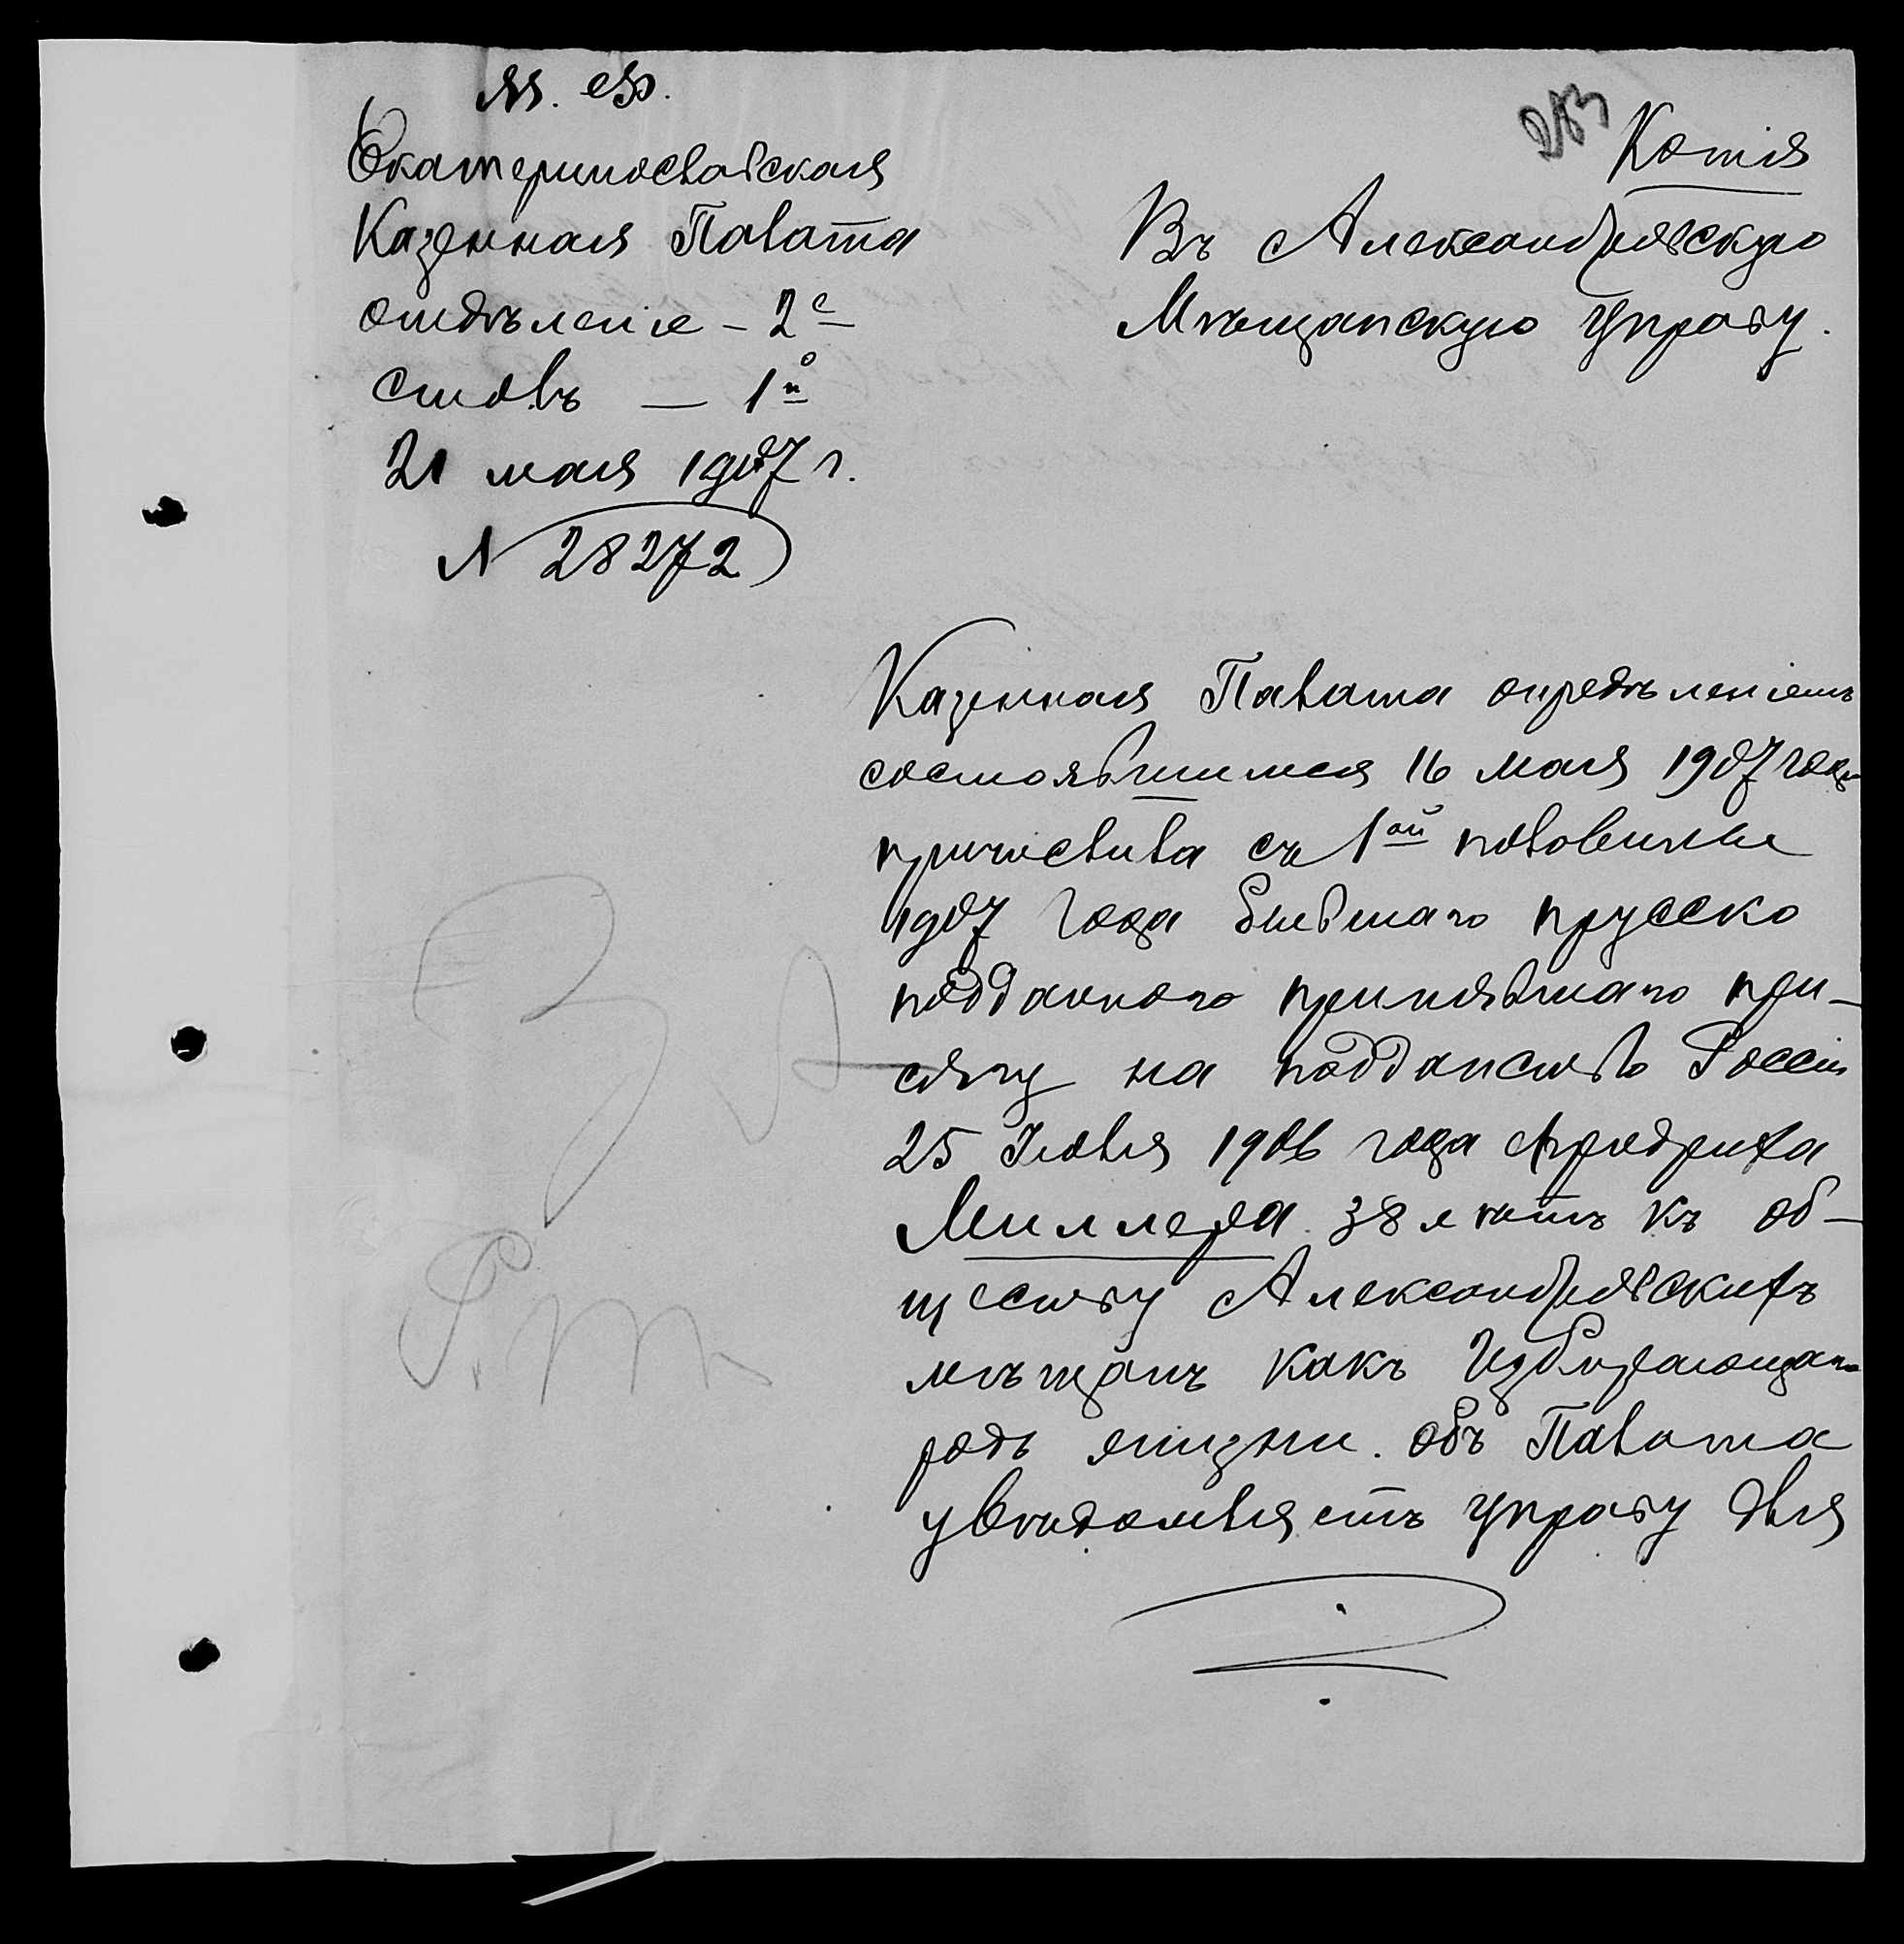 М. Ф.
Екатеринославская
Казенная Палата
отдѣленіе - 2е
столъ — 1й
21 мая 1907 г.
N 28272
Копія
Въ Александровскую
Мѣщанскую Управу.
Казенная Палата опредѣленіемъ
состоявшимся 16 мая 1907 года
причислила съ 1ой половины
1907 года бывшаго прусско
подданного принявшаго при-
сягу на подданство Россіи
25 Іюля 1906 года Фридриха
Миллера 38 лѣтъ къ об-
ществу Александровскихъ
мѣщанъ какъ избирающаго
родъ жизни. Объ Палата
увѣдомляетъ Управу для